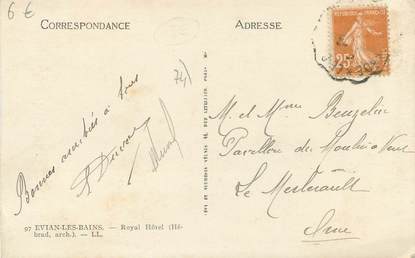 6 €
CORRESPONDANCE
ADRESSE
RÉPUBLIQUE FRANÇAISE
25
741
Bonnes amitiés à tous
M. et Mme Beuzelin
Pavillon du Moulin à Vent
Le Merlerault
Orne
97 EVIAN-LES-BAINS. — Royal Hôtel (Hé-
brad, arch.). — LL.